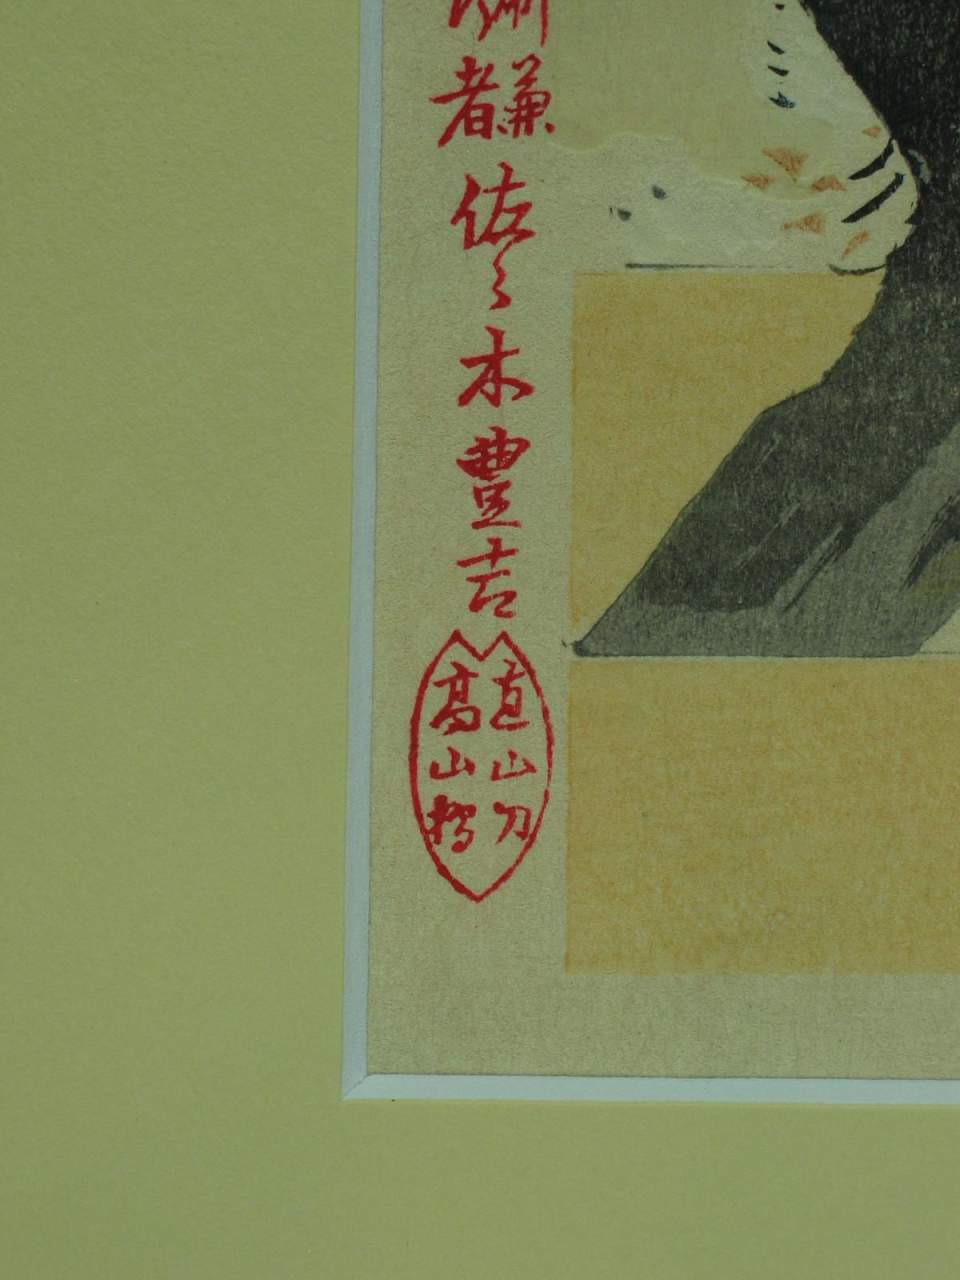 兼
者
佐々木豊吉
直山刀
高山摺